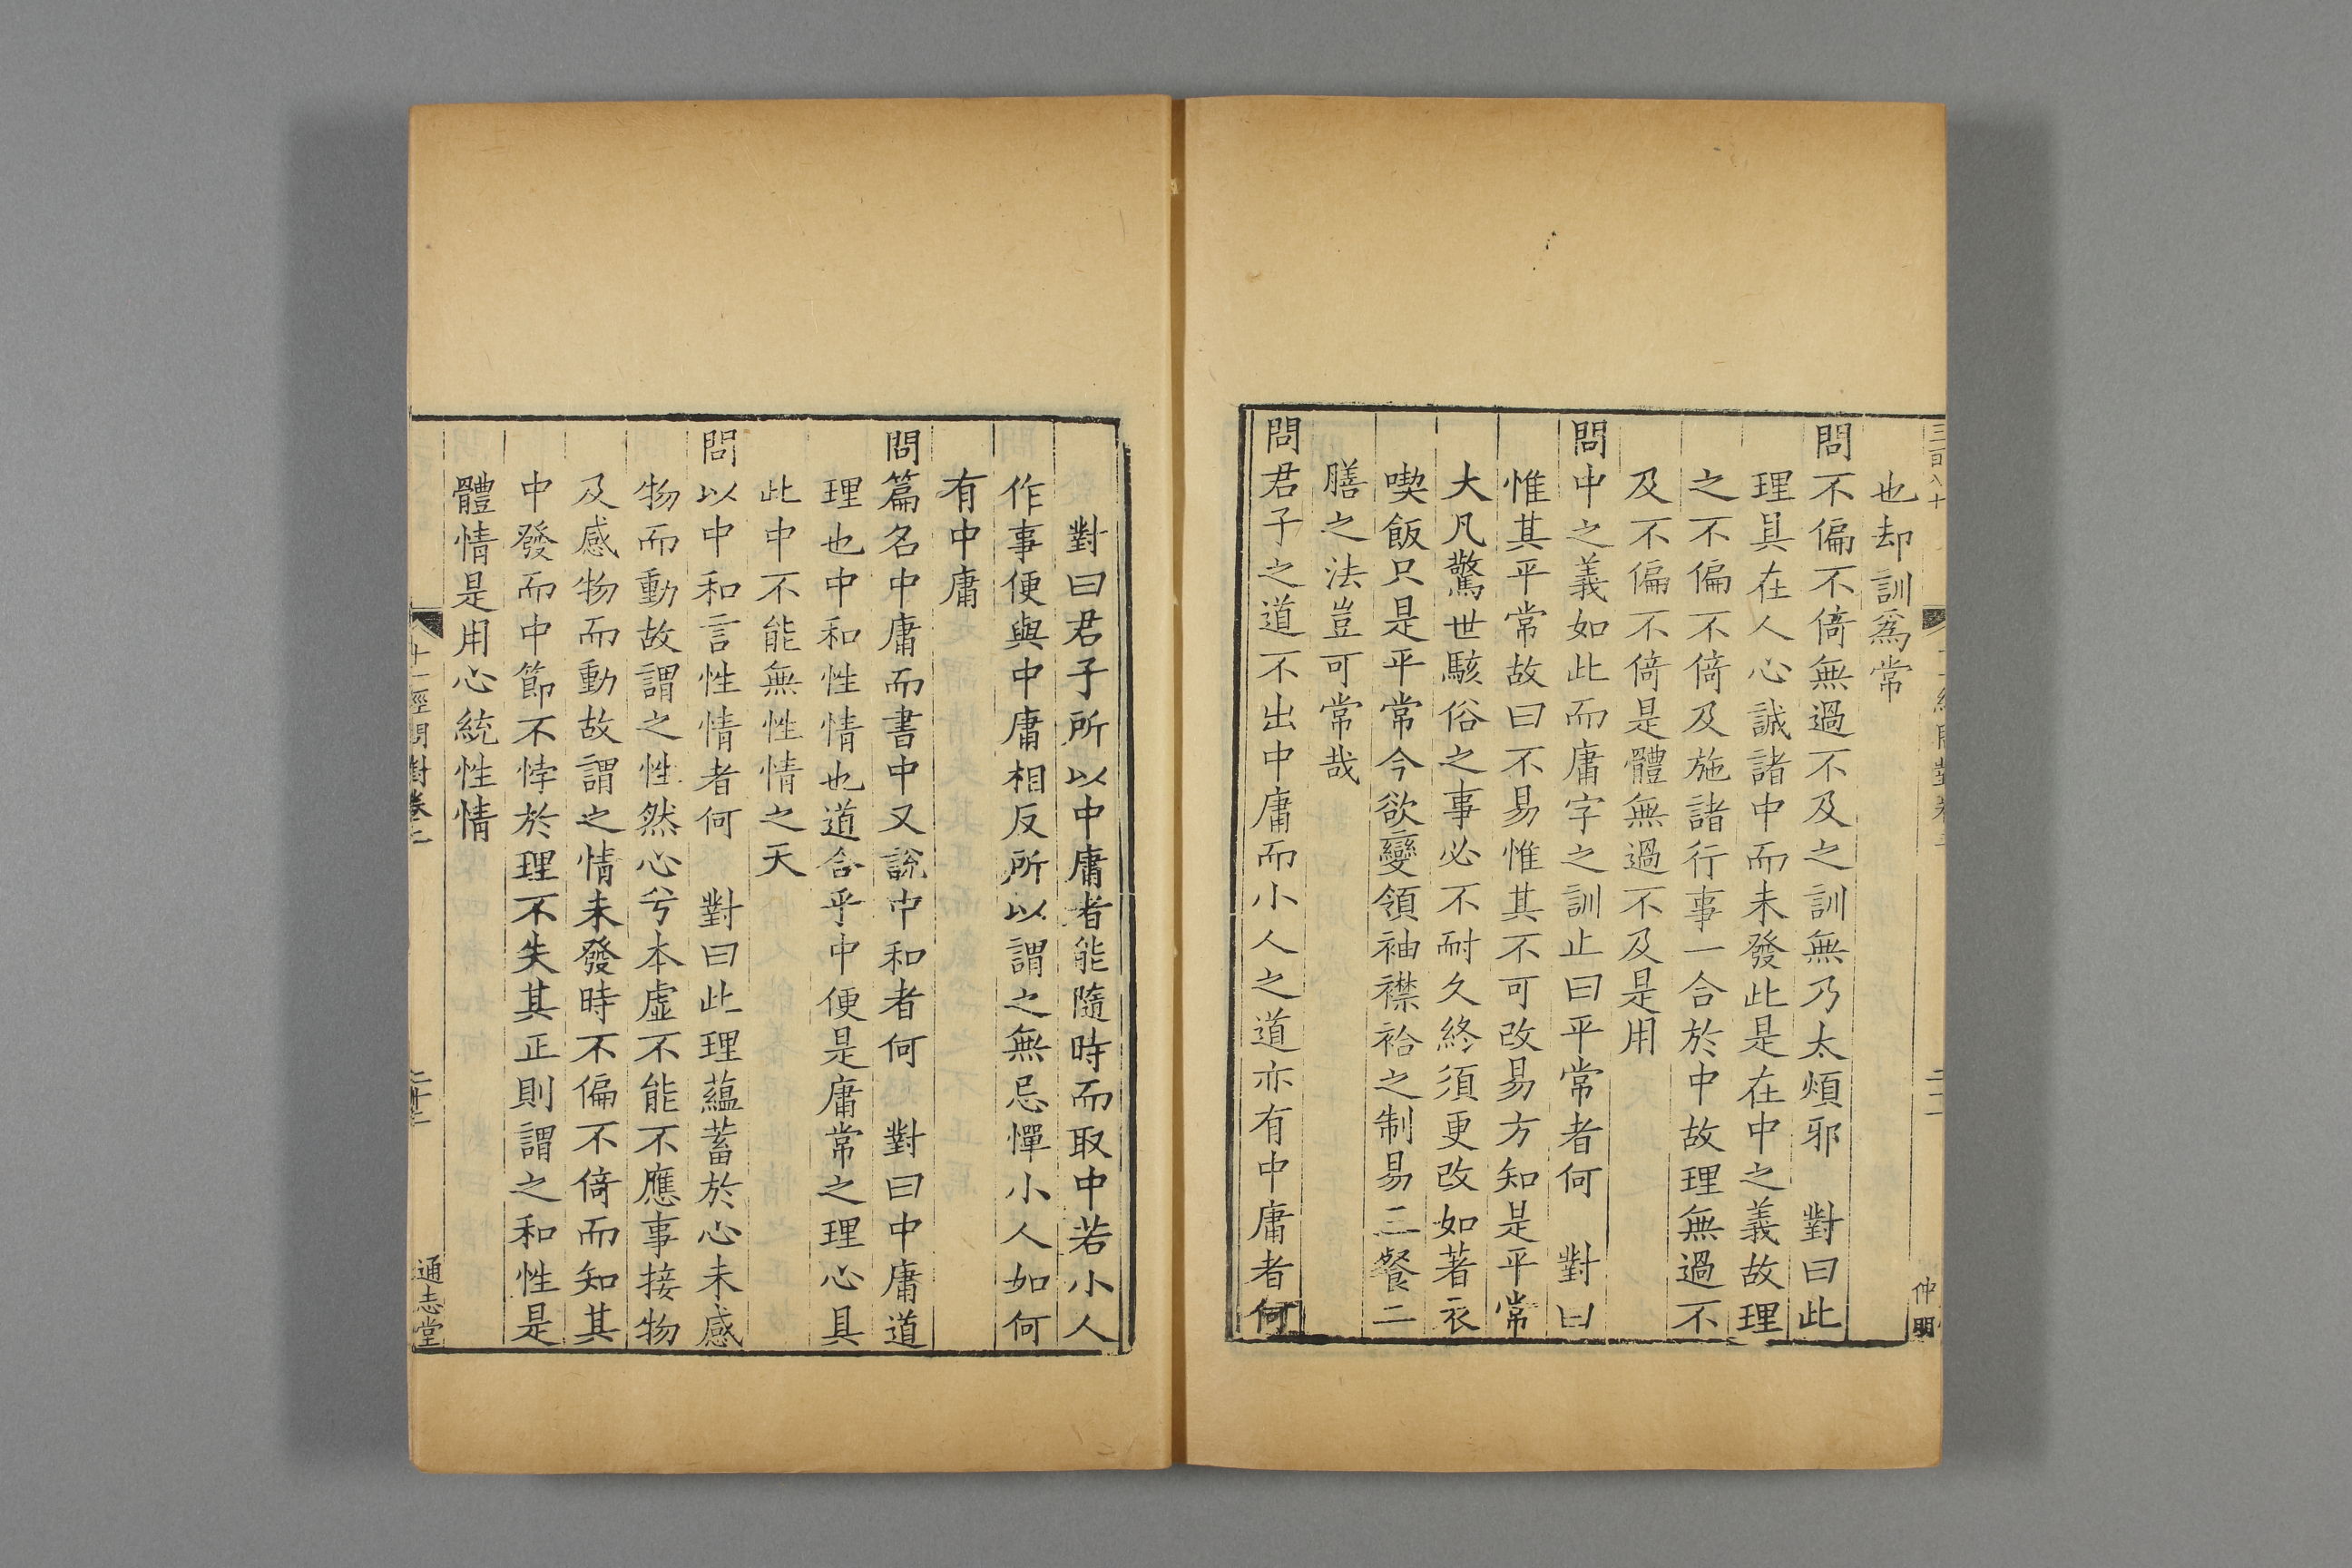 三百八十
仲明
也却訓爲常
問不偏不倚無過不及之訓無乃太煩邪　對曰此
理具在人心誠諸中而未發此是在中之義故理
之不偏不倚及施諸行事一合於中故理無過不
及不偏不倚是體無過不及是用
問中之義如此而庸字之訓止曰平常者何　對曰
惟其平常故曰不易惟其不可改易方知是平常
大凡驚世駭俗之事必不耐久終須更改如著衣
喫飯只是平常今欲變領袖襟袷之制易三餐二
膳之法豈可常哉
問君子之道不出中庸而小人之道亦有中庸者何
對曰君子所以中庸者能隨時而取中若小人
作事便與中庸相反所以謂之無忌憚小人如何
有中庸
問篇名中庸而書中又說中和者何　對曰中庸道
理也中和性情也道合乎中便是庸常之理心具
此中不能無性情之天
問以中和言性情者何　對曰此理蘊蓄於心未感
物而動故謂之性然心兮本虛不能不應事接物
及感物而動故謂之情未發時不偏不倚而知其
中發而中節不悖於理不失其正則謂之和性是
體情是用心統性情
十一經問對卷二
通志堂